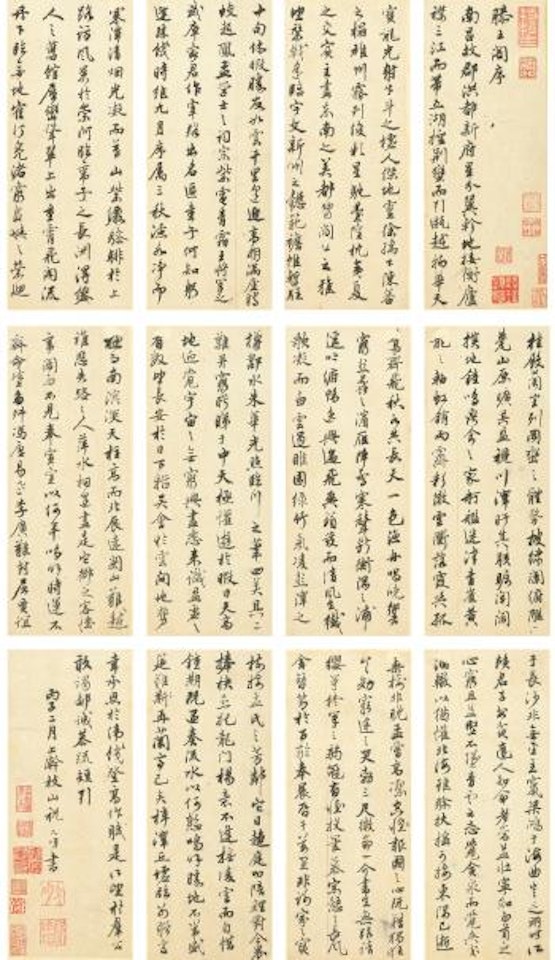 滕王閣序
南昌故郡洪都新府星分翼軫地接衡廬
襟三江而帶五湖控荊蠻而引甌越物華天
寶龍光射牛斗之墟人傑地靈徐孺下陳蕃
之榻雄州霧列俊彩星馳臺隍枕夷夏
之交賓主盡東南之美都督閻公之雅
望棨戟遙臨宇文新州之懿範襜帷暫駐
十旬休暇勝友如雲千里逢迎高朋滿座騰
蛟起鳳孟學士之詞宗紫電青霜王將軍之
武庫家君作宰路出名區童子何知躬
逢勝餞時維九月序屬三秋潦水淨而
寒潭清烟光凝而暮山紫儼驂騑於上
路訪風景於崇阿臨帝子之長洲得仙
人之舊館層巒聳翠上出重霄飛閣流
丹下臨無地鶴汀鳧渚窮島嶼之縈迴
桂殿蘭宮列岡巒之體勢披繡闥俯雕
甍山原曠其盈視川澤盱其駭矚閭閻
撲地鐘鳴鼎食之家舸艦迷津青雀黃
龍之軸虹銷雨霽彩徹雲衢落霞與孤
鶩齊飛秋水共長天一色漁舟唱晚響
窮彭蠡之濱雁陣驚寒聲斷衡陽之浦
遙吟俯暢逸興遄飛爽籟發而清風生纖
歌凝而白雲遏睢園綠竹氣凌彭澤之
樽鄴水朱華光照臨川之筆四美具二
難并窮睇眄於中天極娛遊於暇日天高
地迥覺宇宙之無窮興盡悲來識盈虛之
有數望長安於日下指吳會於雲間地勢
極而南溟深天柱高而北辰遠關山難越
誰悲失路之人萍水相逢盡是他鄉之客懷
帝閽而不見奉宣室以何年嗚呼時運不
齊命途多舛馮唐易老李廣難封屈賈誼
于長沙非無聖主竄梁鴻于海曲豈乏明時所
賴君子安貧達人知命老當益壯寧知白首之
心窮且益堅不墜青雲之志酌貪泉而覺爽處
涸轍以猶懽北海雖賒扶搖可接東隅已逝
桑榆非晚孟嘗高潔空懷報國之心阮籍猖狂
豈效窮途之哭勃三尺微命一介書生無路請
纓等終軍之弱冠有懷投筆慕宗愨之長風
舍簪笏於百齡奉晨昏于萬里非謝家之寶
樹接孟氏之芳鄰他日趨庭叨陪鯉對今晨
捧袂喜托龍門楊意不逢撫凌雲而自惜
鍾期既遇奏流水以何慙嗚呼勝地不常盛
筵難再蘭亭已矣梓澤丘墟臨別贈言
幸承恩於偉餞登高作賦是所望於羣公
敢竭鄙誠恭疏短引
丙子二月上澣枝山祝允明書